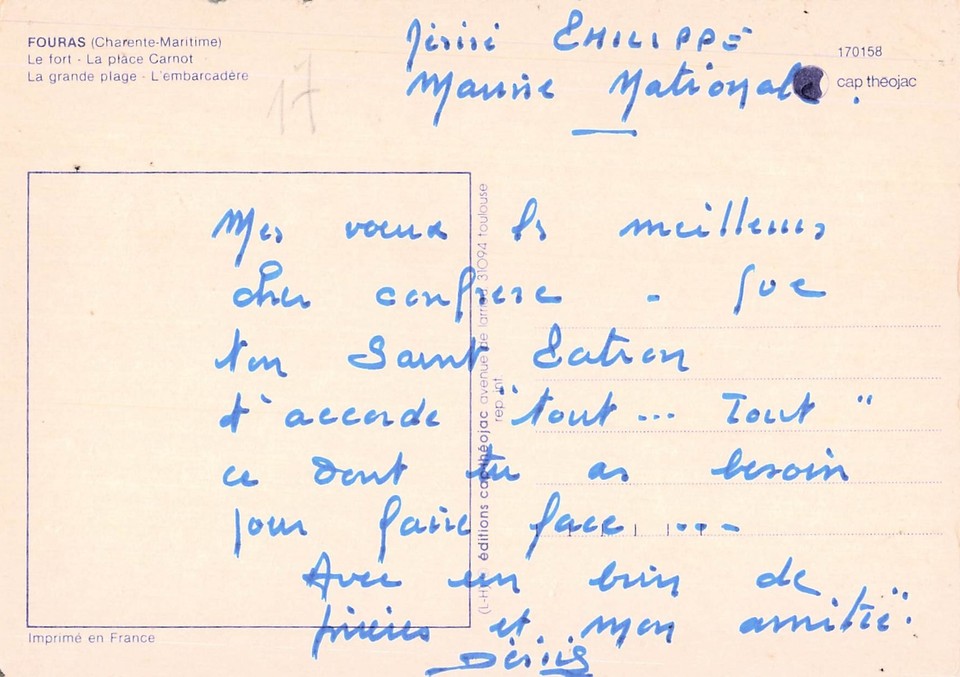 FOURAS (Charente-Maritime)
Le fort - La place Carnot
La grande plage - L'embarcadère
17
PHILIPPE
National
170158
cap théojac
Mes vœux les meilleurs
cher confrère - que
ton Saint Patron
t'accorde "tout ... Tout"
ce dont tu as besoin
pour faire face ...
Avec un brin de
prières et mon amitié.
Denis
(L-H) éditions cap théojac avenue de larrieu 31094 toulouse
rep. int
Imprimé en France